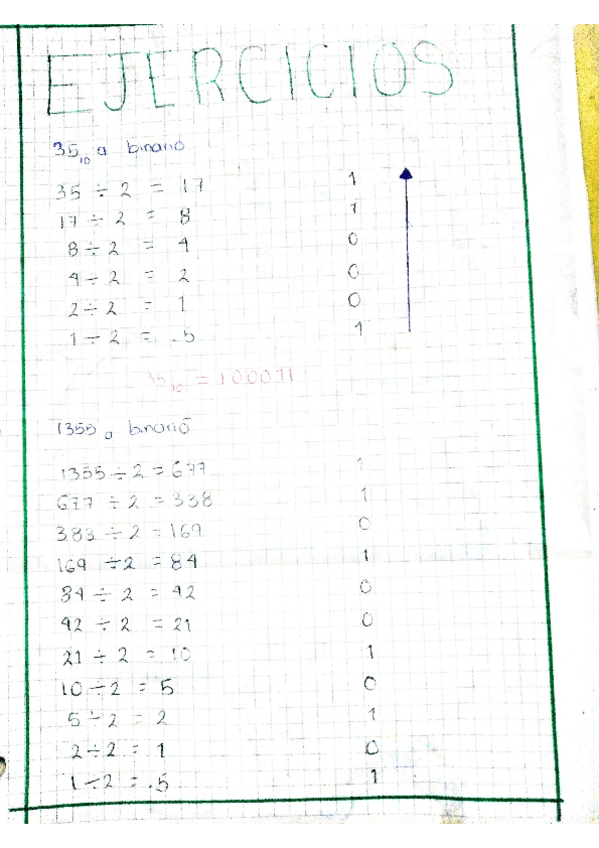 EJERCICIOS
35₁₀ a binario
35 ÷ 2 = 17 1
17 ÷ 2 = 8 1
8 ÷ 2 = 4 0
4 ÷ 2 = 2 0
2 ÷ 2 = 1 0
1 ÷ 2 = .5 1
35₁₀ = 100011
1355 a binario
1355 ÷ 2 = 677 1
677 ÷ 2 = 338 1
383 ÷ 2 = 169 0
169 ÷ 2 = 84 1
84 ÷ 2 = 42 0
42 ÷ 2 = 21 0
21 ÷ 2 = 10 1
10 ÷ 2 = 5 0
5 ÷ 2 = 2 1
2 ÷ 2 = 1 0
1 ÷ 2 = .5 1